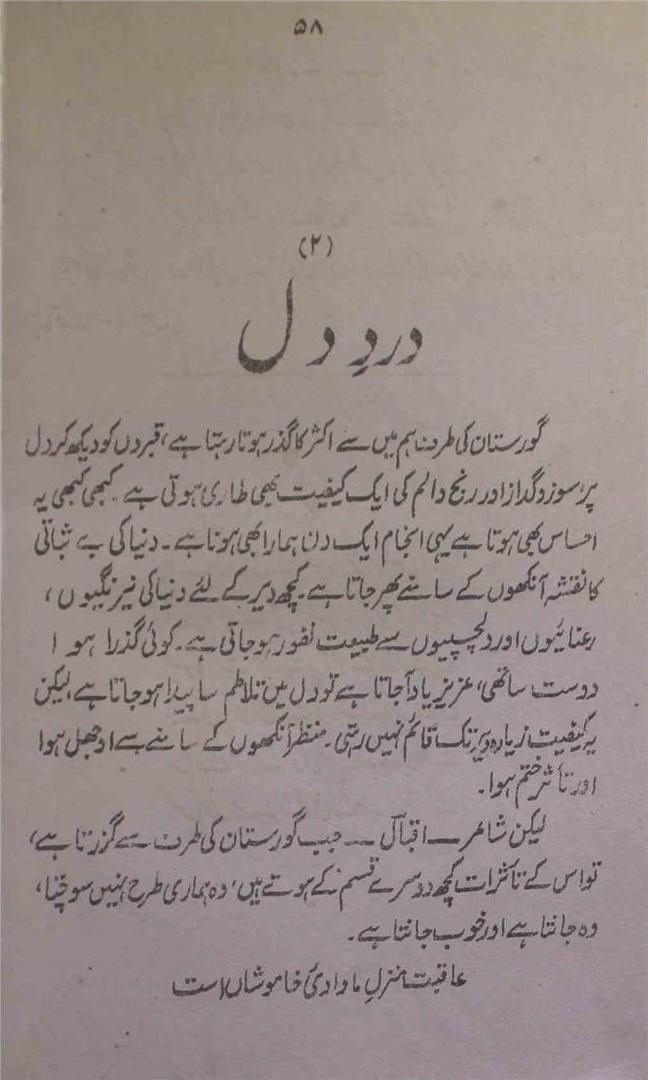 ۵۸
(۲)
دردِ دل
گورستان کی طرف ہم میں سے اکثر کا گذر ہوتا رہتا ہے، قبروں کو دیکھ کر دل
پر سوز و گداز اور رنج و الم کی ایک کیفیت بھی طاری ہوتی ہے۔ کبھی کبھی یہ
احساس بھی ہوتا ہے یہی انجام ایک دن ہمارا بھی ہونا ہے۔ دنیا کی بے ثباتی
کا نقشہ آنکھوں کے سامنے پھر جاتا ہے۔ کچھ دیر کے لئے دنیا کی نیرنگیوں،
رعنائیوں اور دلچسپیوں سے طبیعت نفور ہو جاتی ہے۔ کوئی گذرا ہوا
دوست ساتھی، عزیز یاد آجاتا ہے تو دل میں تلاطم سا پیدا ہو جاتا ہے، لیکن
یہ کیفیت زیادہ دیر تک قائم نہیں رہتی۔ منظر آنکھوں کے سامنے سے اوجھل ہوا
اور تأثر ختم ہوا۔
لیکن شاعر ـــ اقبالؔ ـــ جب گورستان کی طرف سے گزرتا ہے،
تو اس کے تاثرات کچھ دوسرے قسم کے ہوتے ہیں، وہ ہماری طرح نہیں سوچتا،
وہ جانتا ہے اور خوب جانتا ہے۔
عاقبت منزلِ ما وادیٔ خاموشاں است